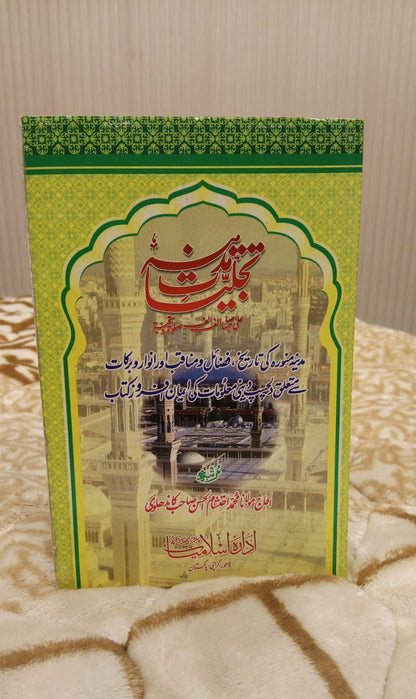 تجلیاتِ مدینہ
مدینہ منورہ کی تاریخ، فضائل و مناقب اور انوار و برکات
سے متعلق دلچسپ دینی معلومات کی ایمان افروز کتاب
الحاج مولانا محمد احتشام الحسن صاحب کاندھلوی
ادارہ اسلامیات
لاہور، کراچی، پاکستان